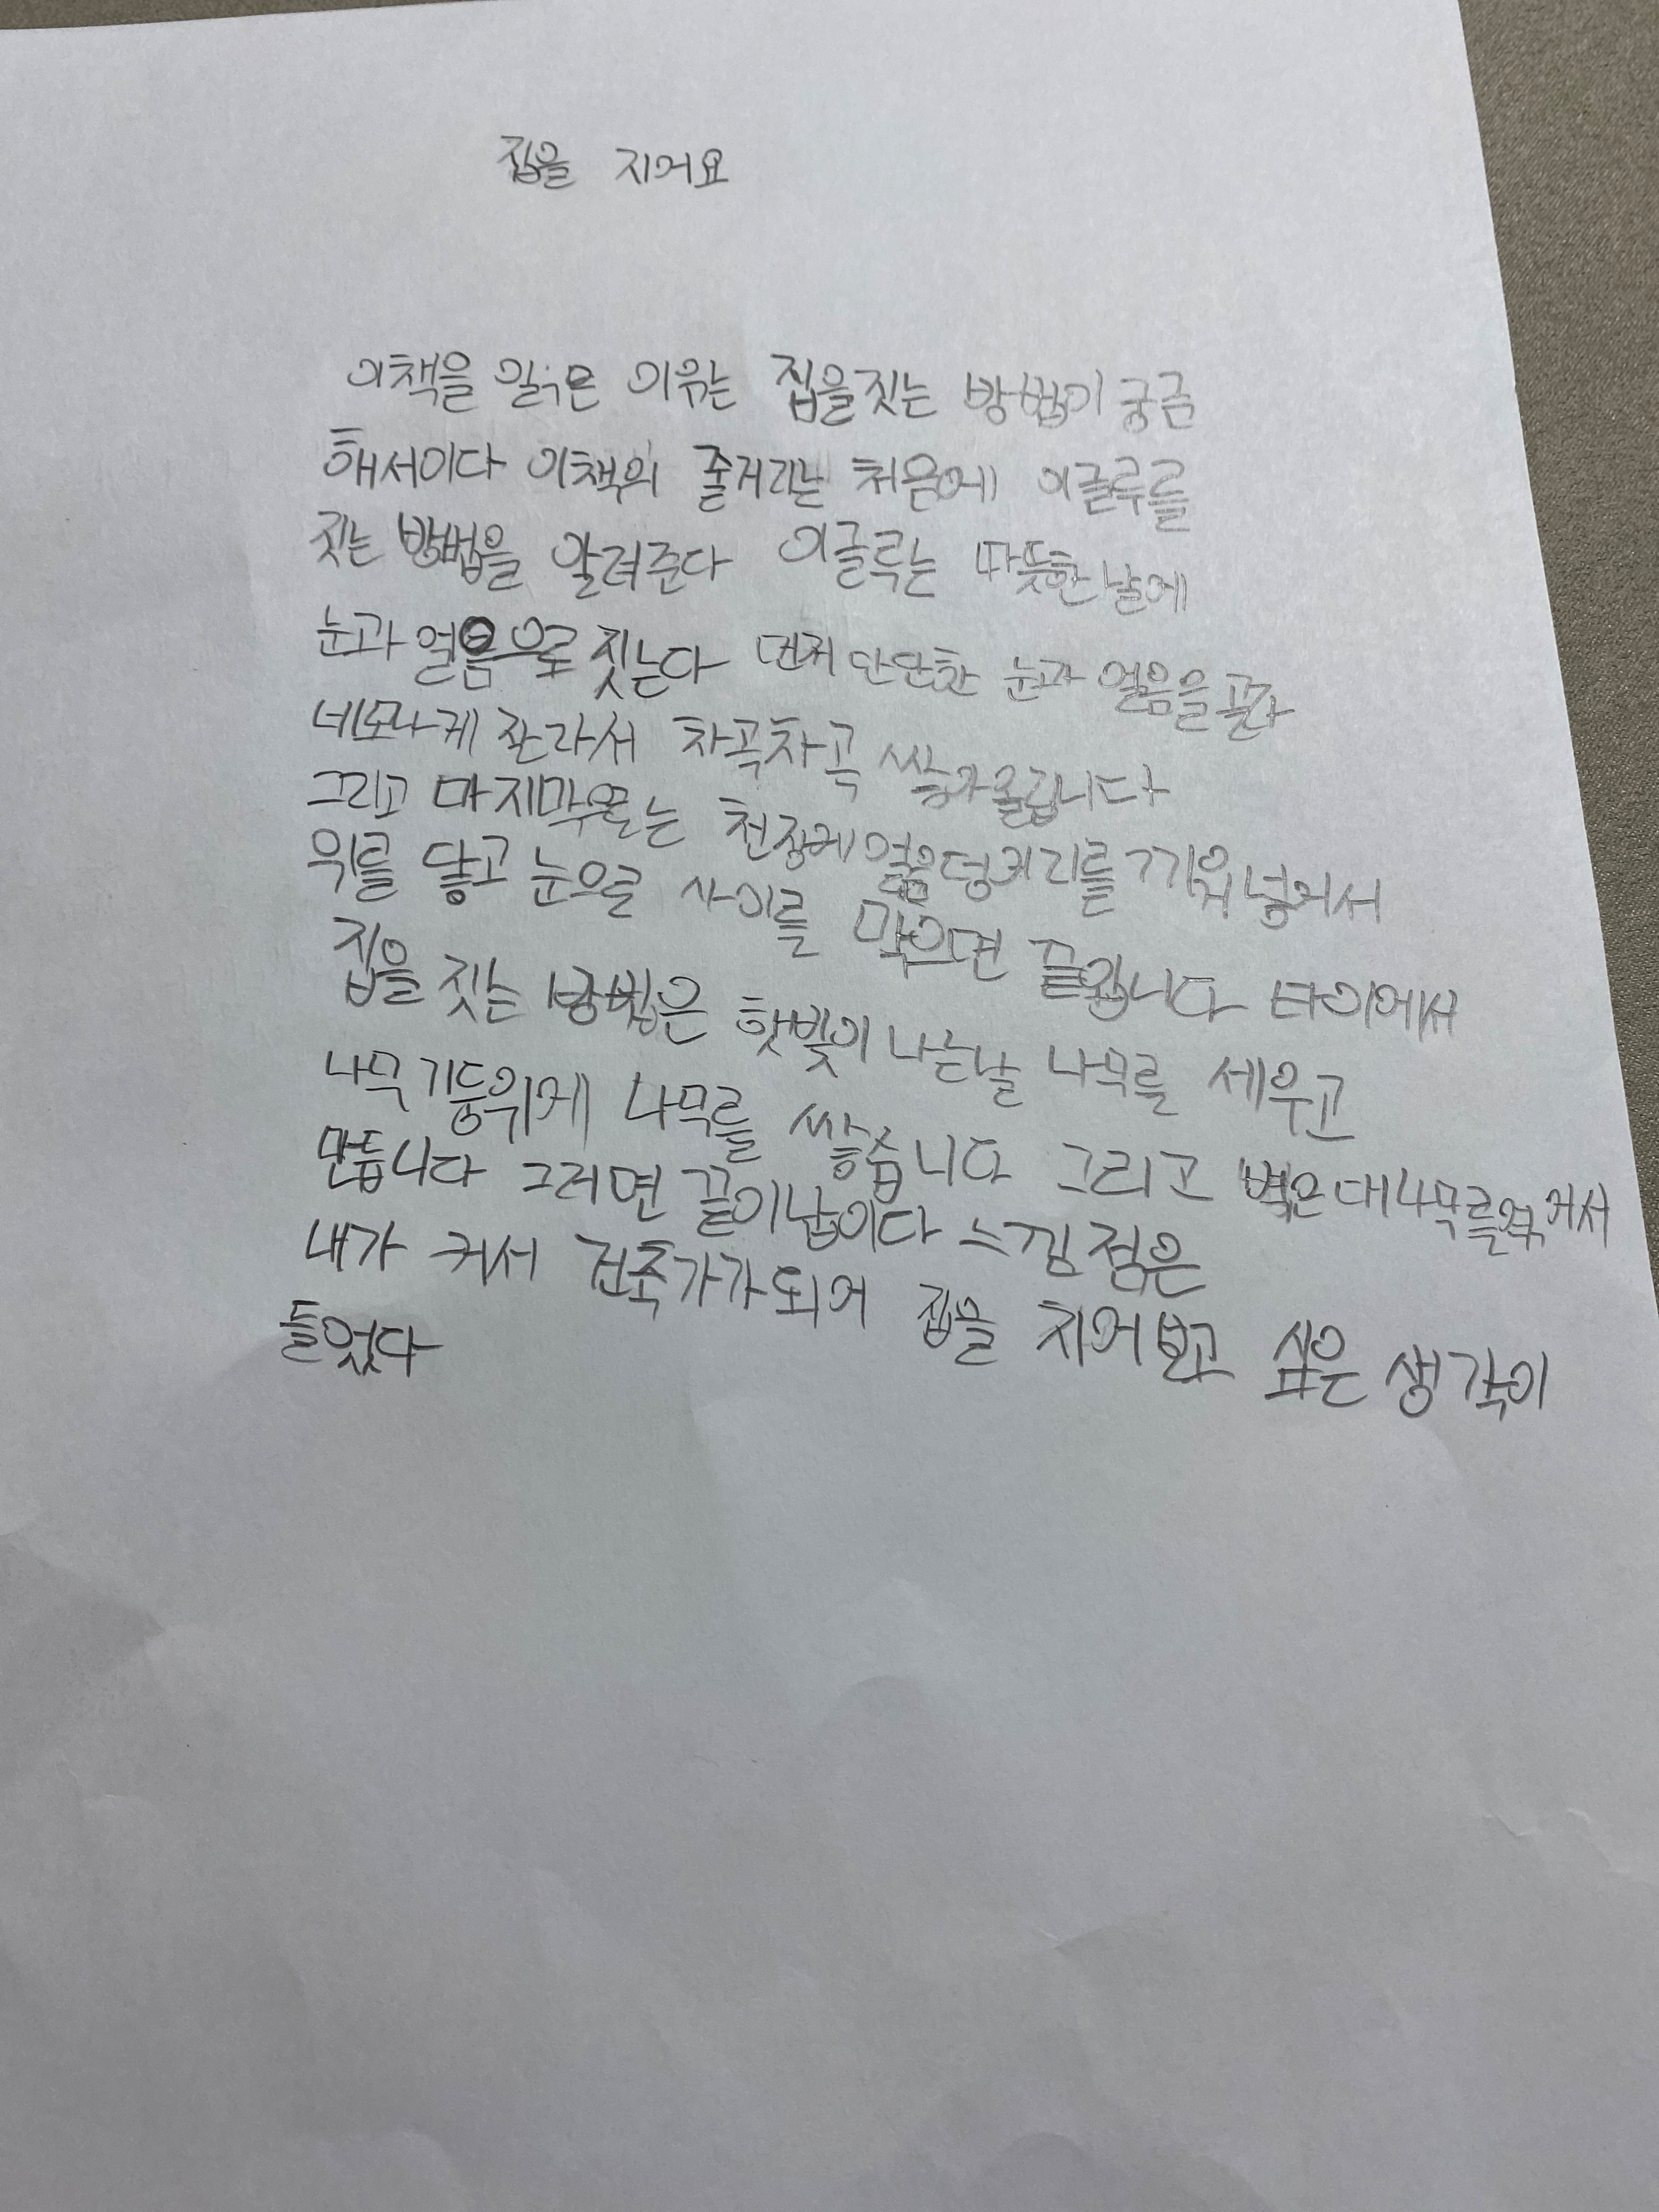 집을 지어요
이책을 읽은 이유는 집을짓는 방법이 궁금
해서이다 이책의 줄거리는 처음에 이글루를
짓는 방법을 알려준다 이글루는 따뜻한날에
눈과 얼음으로 짓는다 먼저 단단한 눈과 얼음을 골라
네모나게 잘라서 차곡차곡 쌓아올립니다
그리고 마지막으로는 천장에 얼음덩어리를 끼워넣어서
위를 닿고 눈으로 사이를 막으면 끝입니다 타이에서
집을 짓는 방법은 햇빛이 나는날 나무를 세우고
나무기둥위에 나무를 쌓습니다 그리고 벽은대나무를엮어서
만듭니다 그러면 끝이납이다 느낌점은
내가 커서 건축가가되어 집을 지어보고 싶은 생각이
들었다